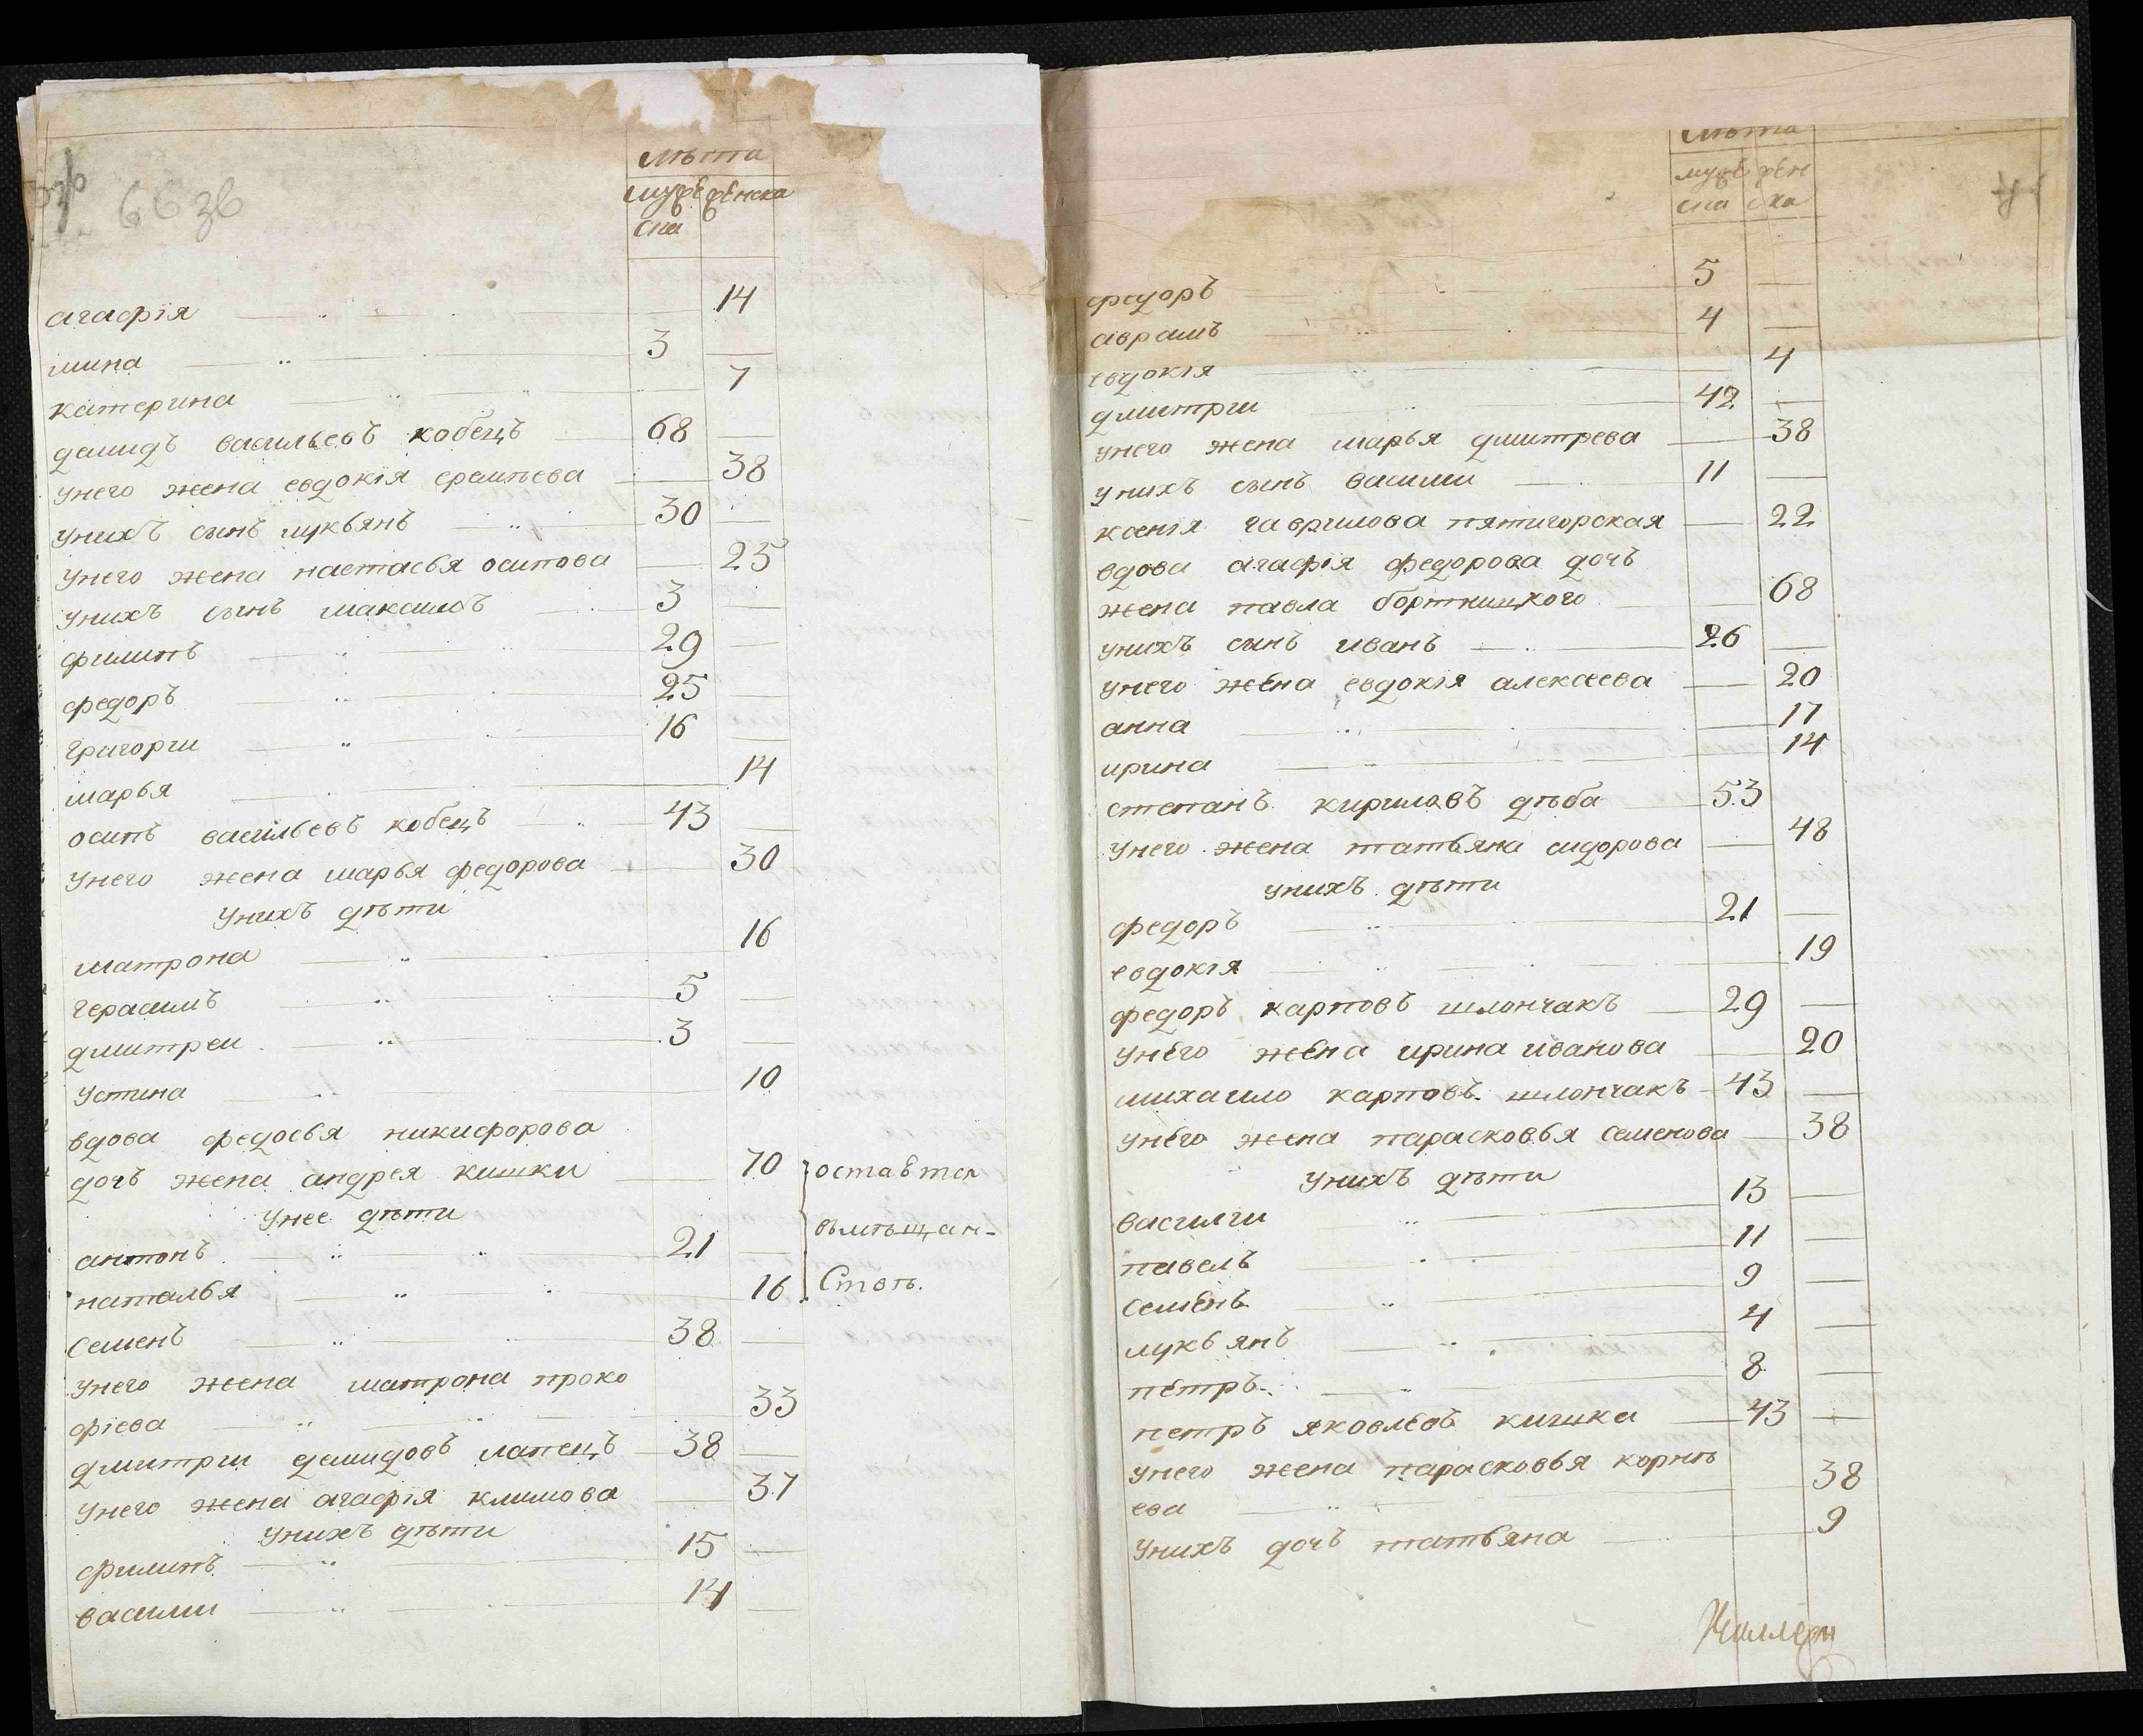 66 зв
лѣта
мужеска женска
агафія 14
мина 3
катерина 7
демидъ васильевъ кобецъ 68
унего жена евдокія еремѣева 38
унихъ сынъ лукьянъ 30
Унего жена настасья осипова 25
унихъ сынъ максимъ 3
филипъ 29
федоръ 25
григорш 16
марья 14
осипъ васильевъ кобецъ 43
Унего жена марья федорова 30
Унихъ дѣти
матрона 16
герасимъ 5
дмитреи 3
Устина 10
вдова федосья никифорова
дочъ жена андрея кишки 70 остается
Унее дѣти вымѣщан-
антонъ 21
наталья 16 Ствѣ.
Семенъ 38
Унего жена матрона проко
фіева 33
дмитрш демидовъ лапецъ 38
Унего жена агафія климова 37
Унихъ дѣти
филипъ 15
васили 14
лѣта
муже ска жен ска
федоръ 5
аврамъ 4
евдокія 4
дмитри 42
унего жена марья дмитрева 38
унихъ сынъ василии 11
ксенія гаврилова пятигорская 22
вдова агафія федорова дочъ
жена павла бортницкого 68
унихъ сынъ иванъ 26
Унего жена евдокія алексеева 20
анна 17
ирина 14
степанъ кириловъ дѣба 53
Унего жена татьяна сидорова 48
унихъ дѣти
федоръ 21
евдокія 19
федоръ карповъ шлончакъ 29
Унего жена ирина иванова 20
михаило карповъ шлончакъ 43
Унего жена парасковья семенова 38
Унихъ дѣти
василги 13
павелъ 11
Семенъ 9
лукьянъ 4
петръ 8
петръ яковлевъ кишка 43
Унего жена парасковья корнѣ
ева 38
Унихъ дочъ татьяна 9